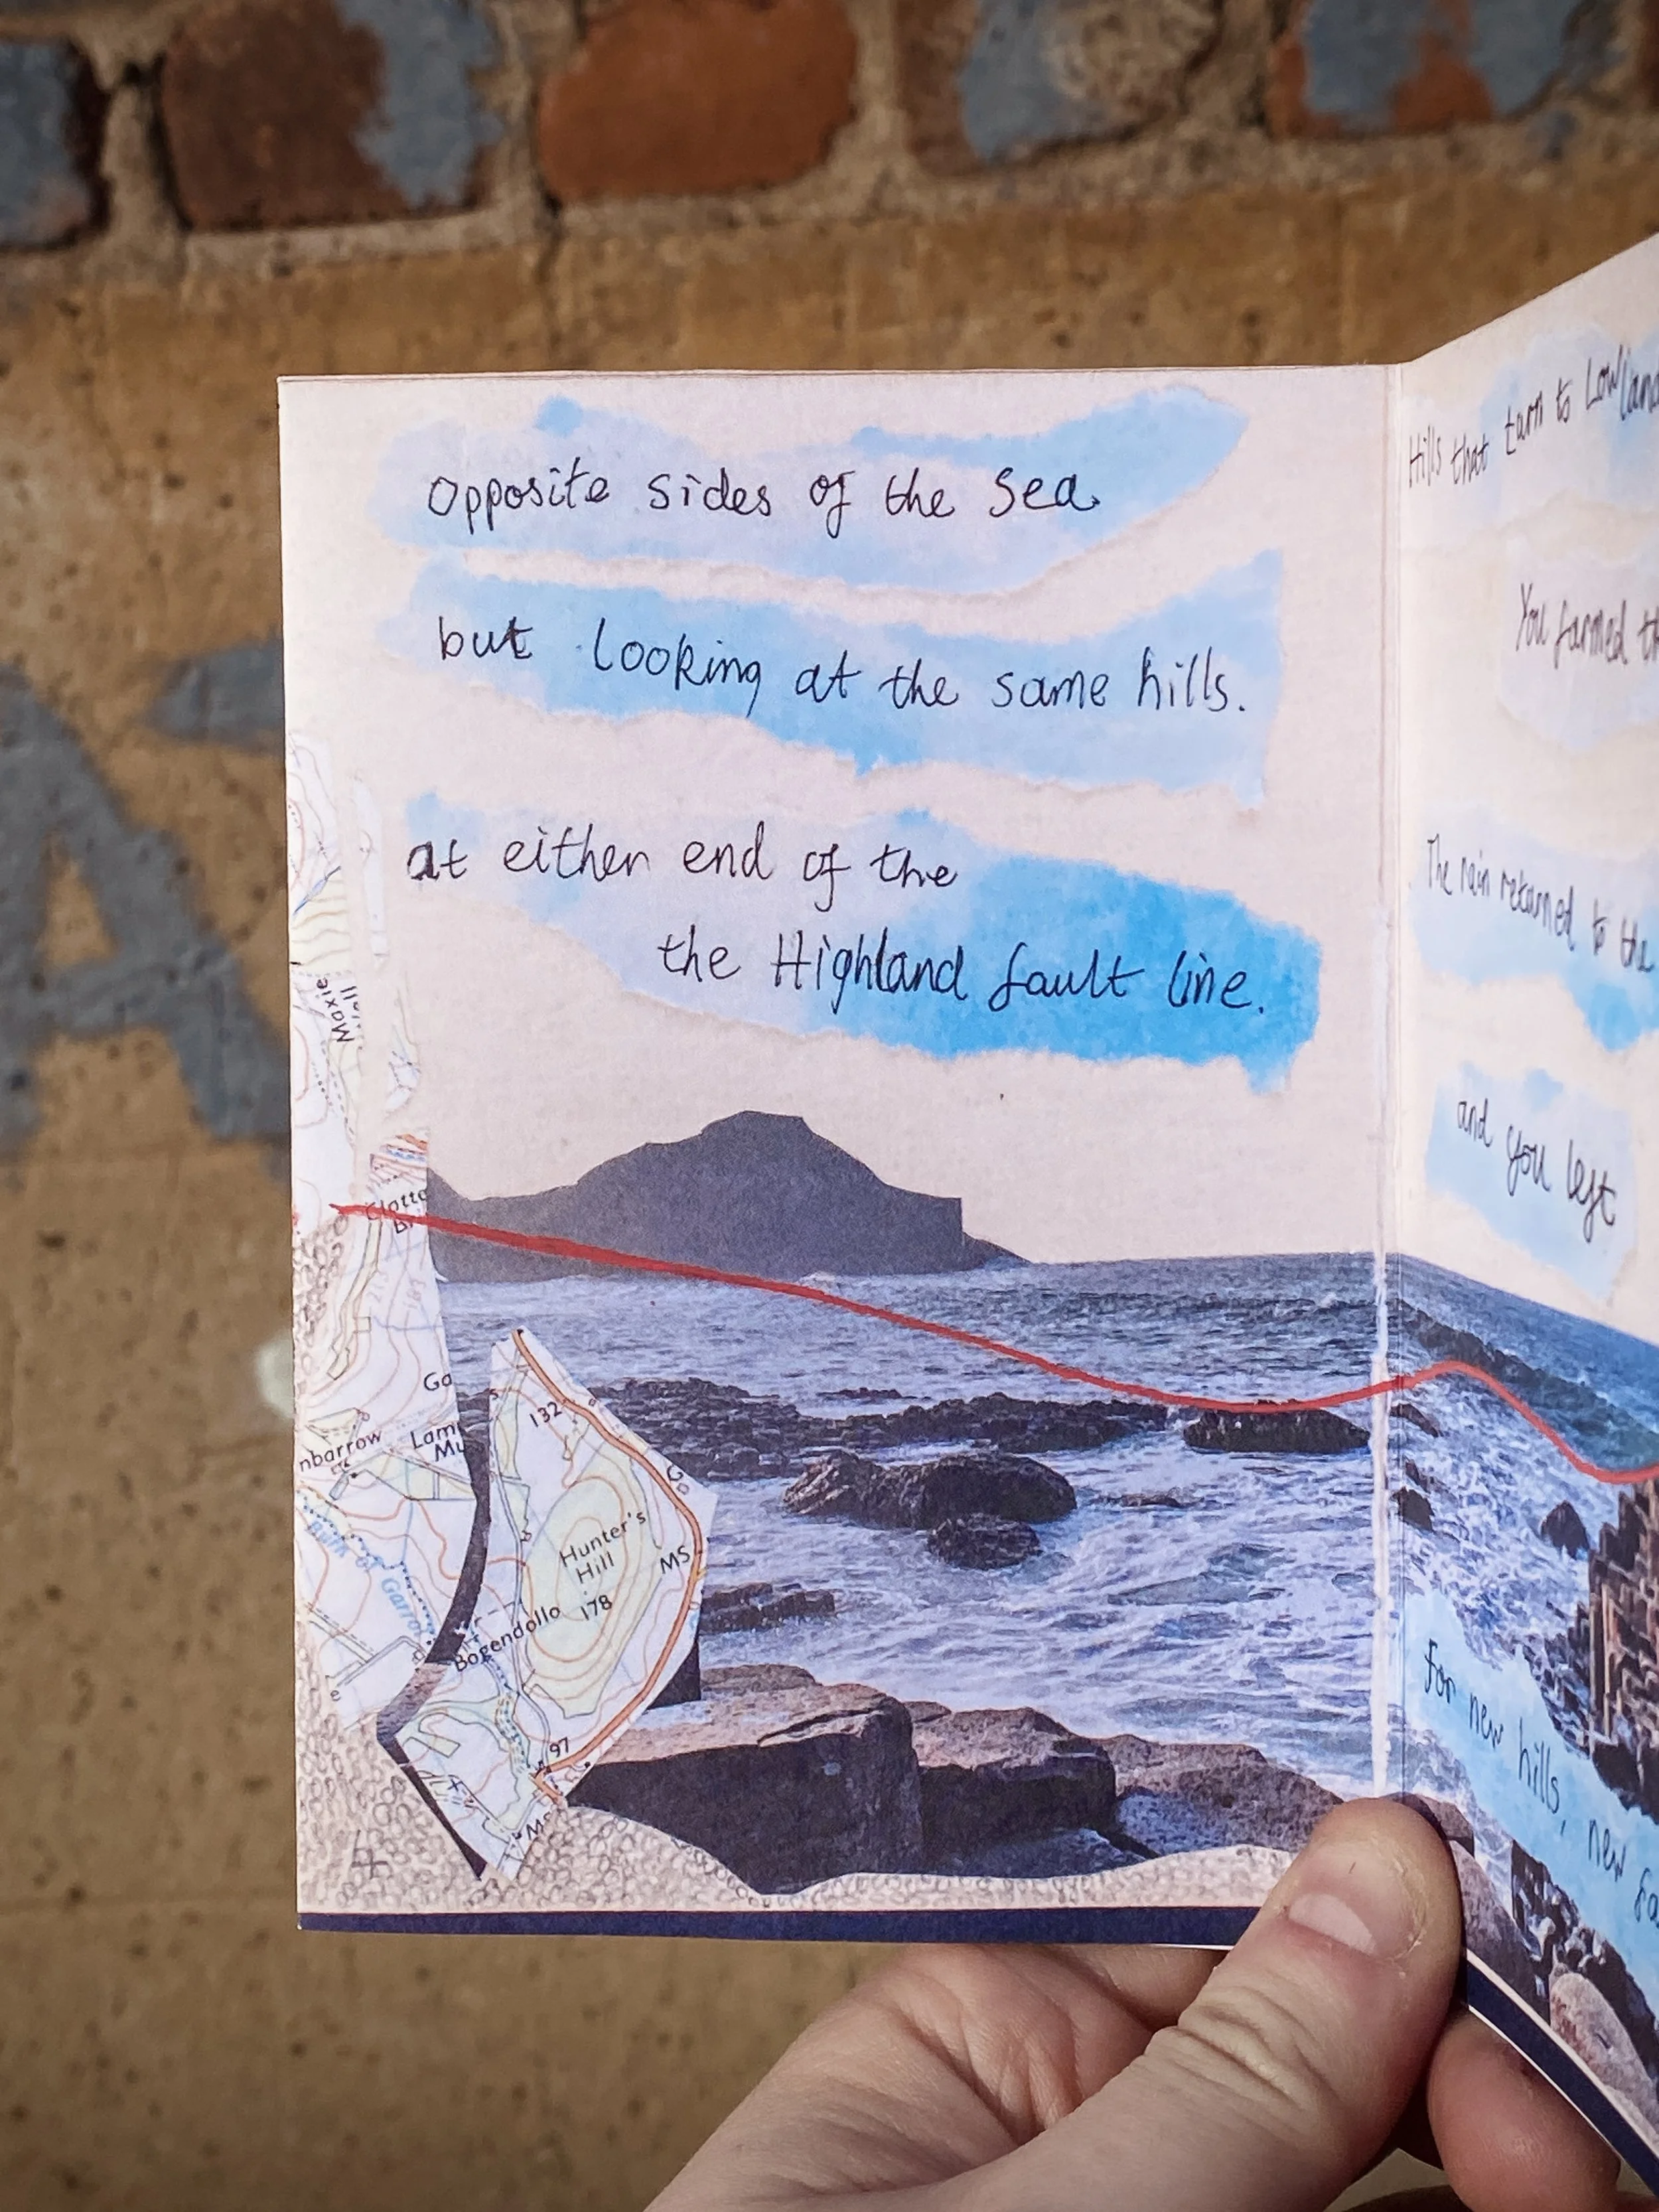 opposite sides of the sea
but looking at the same hills.
at either end of the
the Highland fault line.
Maxie
Hunter's
Hill
178
132
G
MS
Bogendollo
97
Ms
Ga
Lam
Mu
nbarrow
Burn of Garro
Hills that turn to Lowland
You farmed th
The rain returned to the
and you left
for new hills, new fa